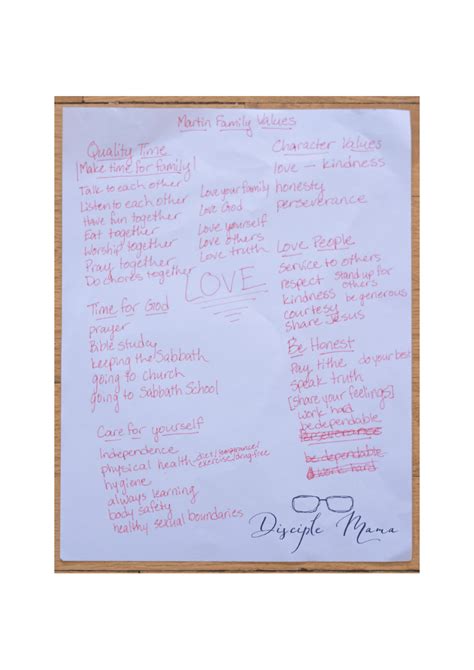 Martin Family Values
Quality Time
Make time for family!
Talk to each other
Listen to each other
Have fun together
Eat together
Worship together
Pray together
Do chores together
Love your family
Love God
Love yourself
Love others
Love truth
LOVE
Time for God
prayer
Bible study
keeping the Sabbath
going to church
going to Sabbath School
Care for yourself
Independence
physical health - diet/
exercise/drug free
hygiene
always learning
body safety
healthy sexual boundaries
Character Values
love - kindness
honesty
perseverance
Love People
service to others
respect stand up for
kindness others
courtesy be generous
share Jesus
Be Honest
Pay tithe do your best
speak truth
[share your feelings]
work hard
be dependable
Perseverance
be dependable
work hard
Disciple Mama